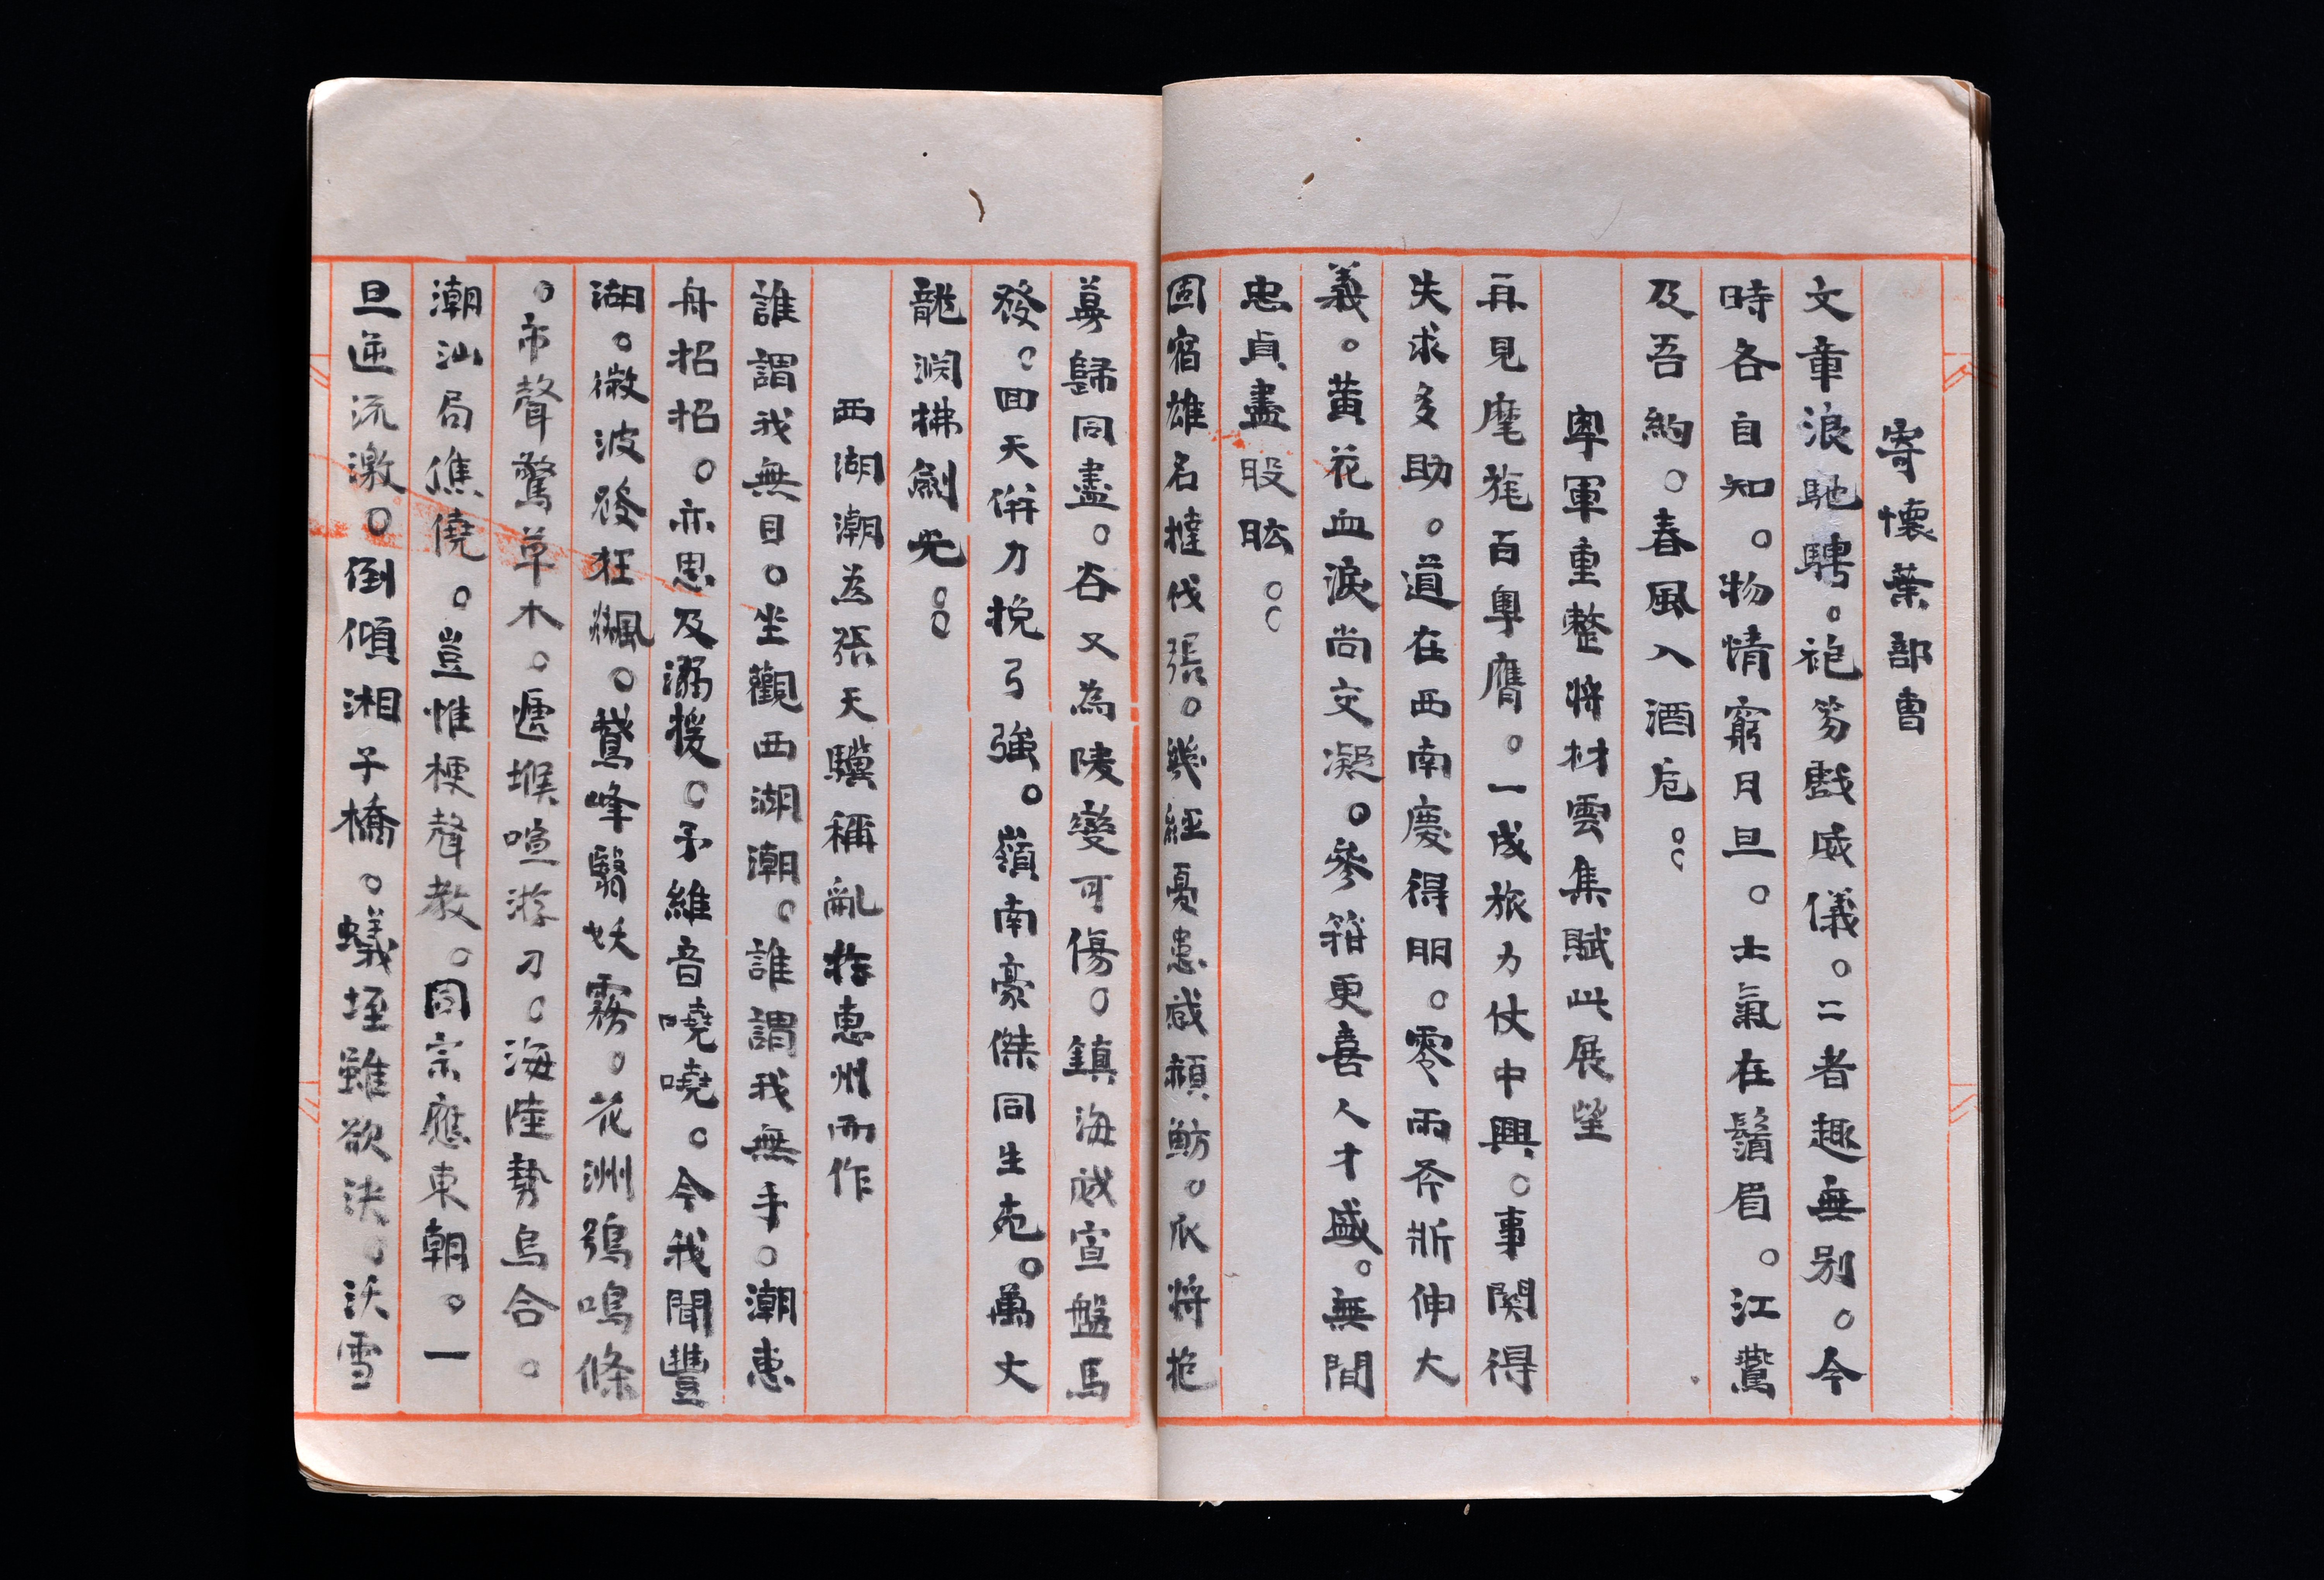 寄懷葉部曹
文章浪馳騁。袍笏戲威儀。二者趣無別。今
時各自知。物情窮日旦。士氣在鬚眉。江鶯
及吾約。春風入酒卮。。
粵軍重整將材雲集賦此展望
再見麾旄百粵膺。一成旅力仗中興。事関得
失求多助。道在西南慶得朋。零雨斧斨伸大
義。黃花血淚尚交凝。參箝更喜人才盛。無間
忠貞盡股肱。。
固宿雄名撻伐張。幾經憂患感頳魴。瓜將抱
蔓歸同盡。谷又為陵變可傷。鎮海威宣盤馬
發。回天併力挽弓強。嶺南豪傑同生色。萬丈
龍淵拂劍光。。
西湖潮為張天驥稱亂於惠州而作
誰謂我無目。坐觀西湖潮。誰謂我無手。潮惠
舟招招。亦思及溺援。予維音嘵嘵。今我聞豐
湖。微波發狂飆。鵞峰翳妖霧。花洲鴞鳴條
。市聲驚草木。遞堠喧游刀。海陸勢烏合。
潮汕局僬僥。豈惟梗聲教。同宗應東朝。一
旦逆流激。倒傾湘子橋。蟻垤雖欲決。沃雪